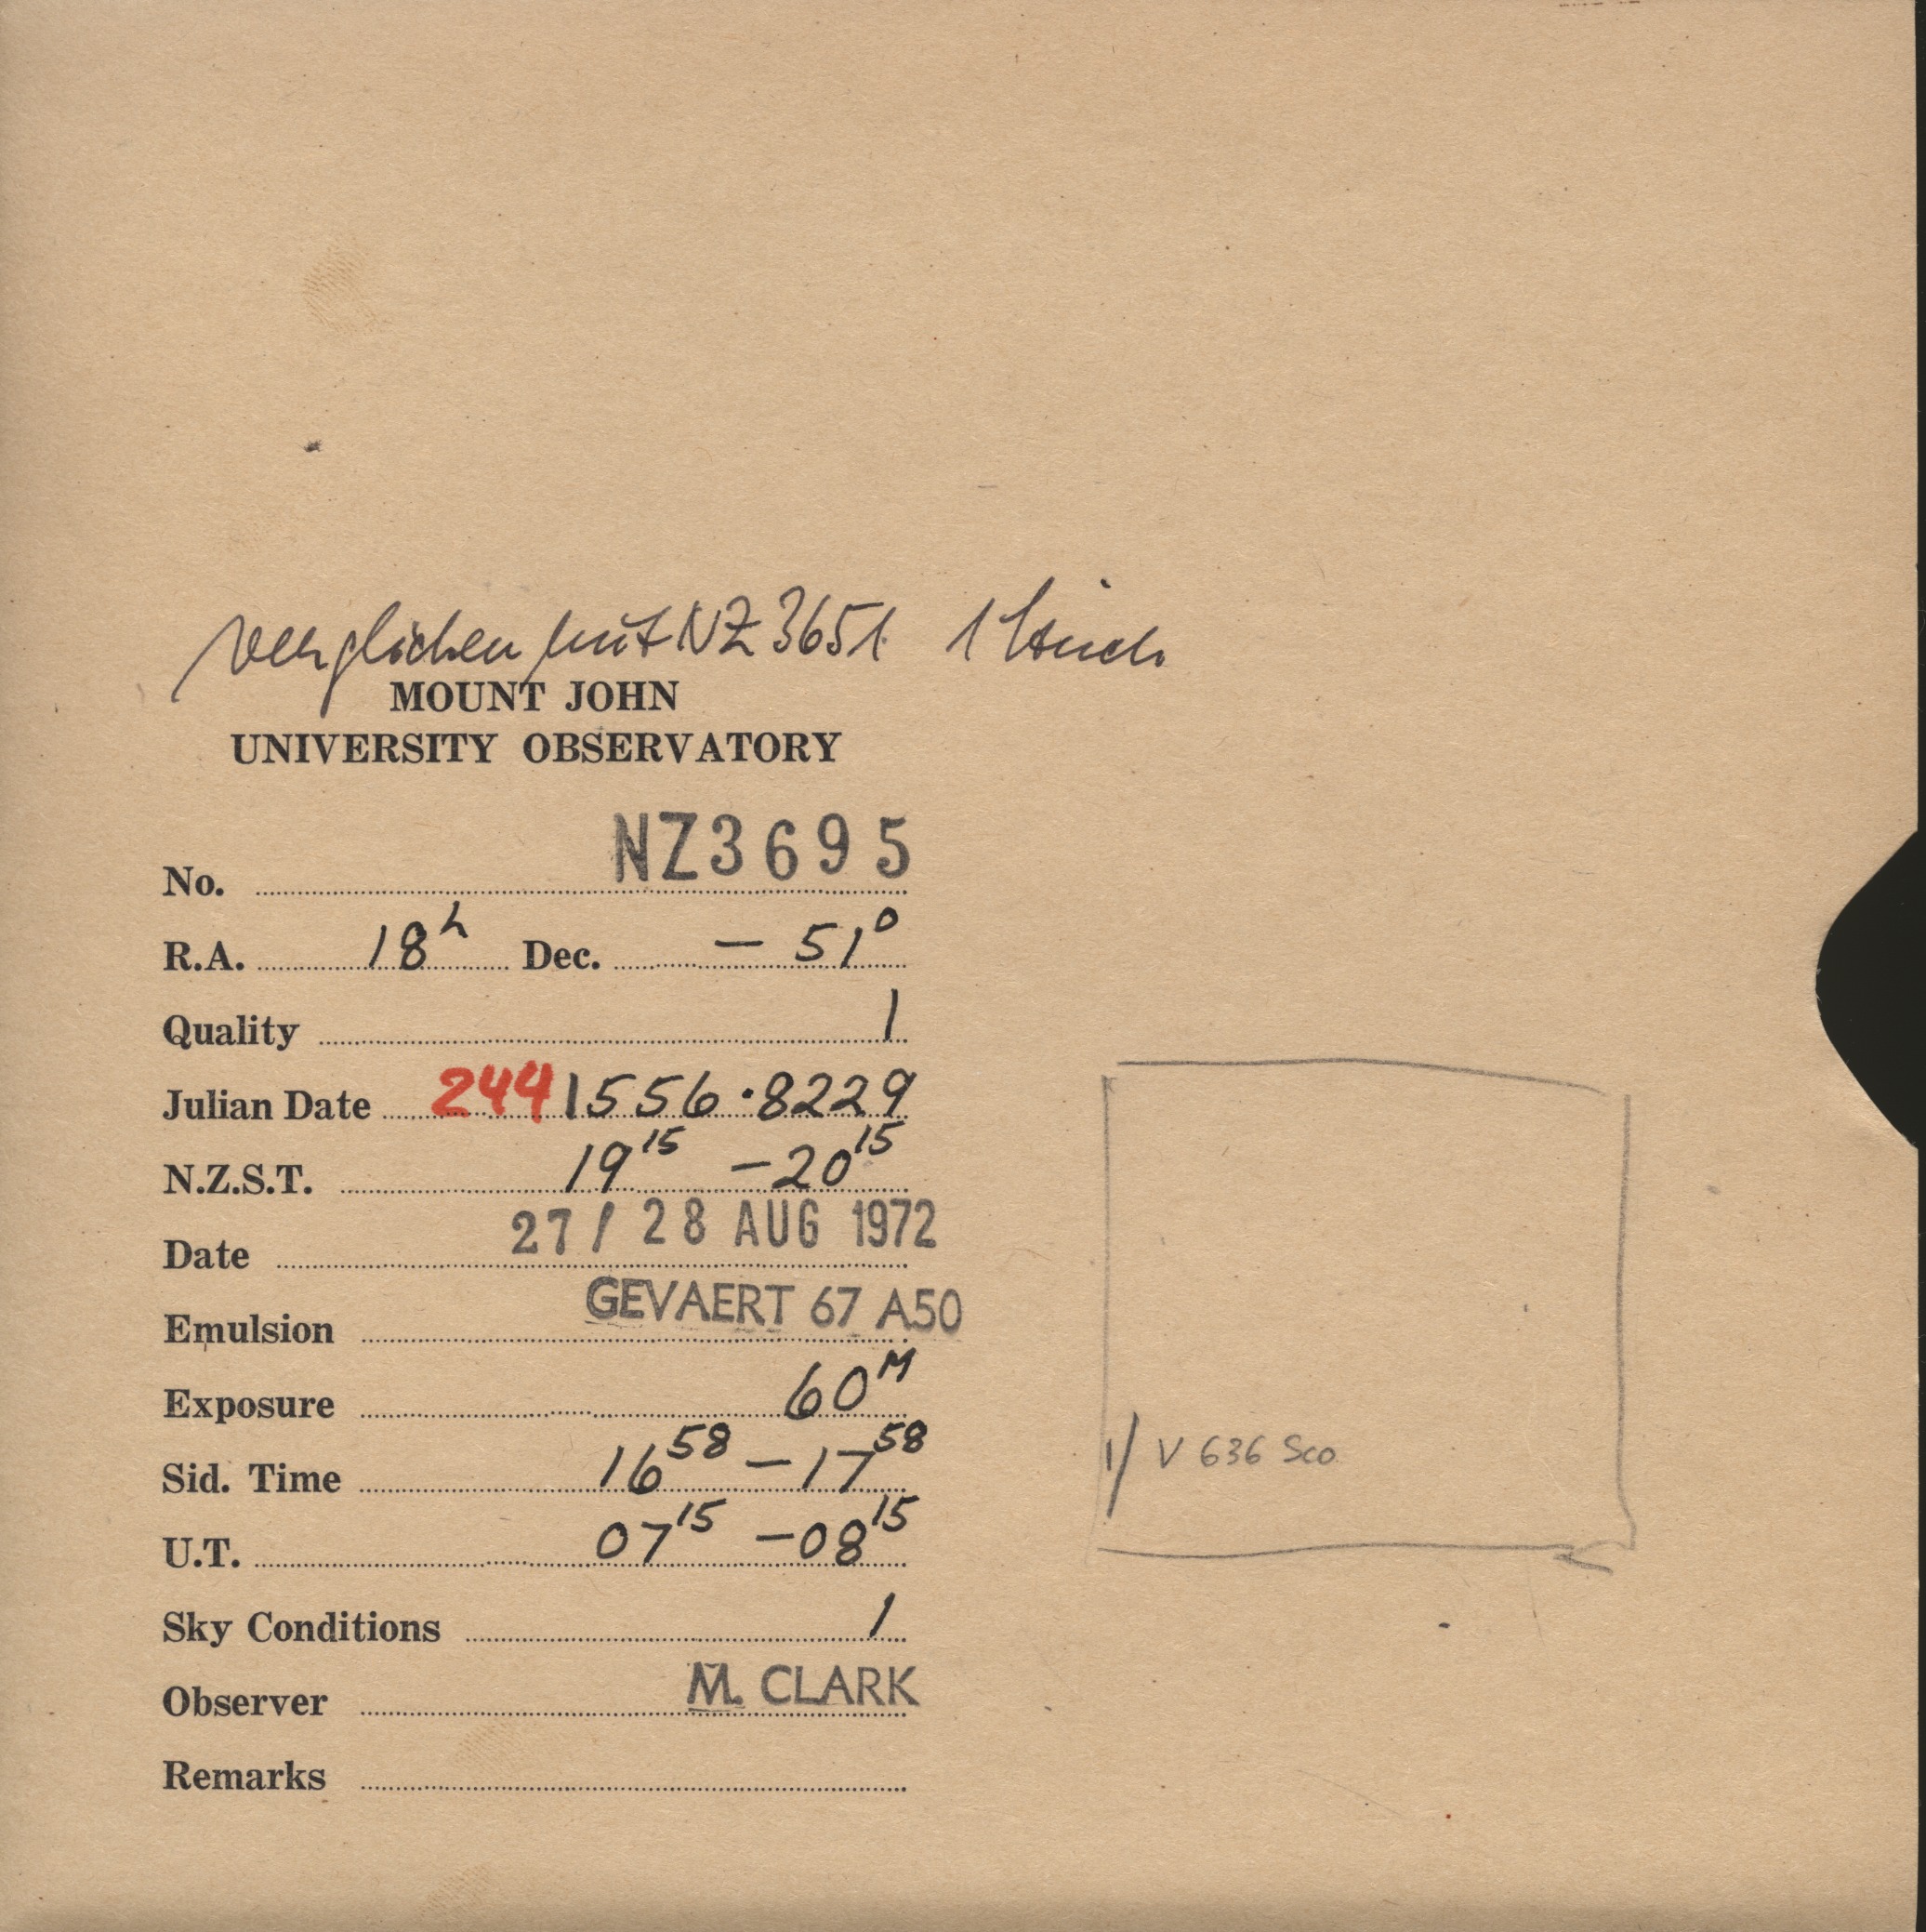 verglichen mit NZ 3651 1
MOUNT JOHN
UNIVERSITY OBSERVATORY
No. NZ3695
R.A. 18h Dec. – 51°
Quality 1
Julian Date 2441556.8229
N.Z.S.T. 19 15 – 20 15
Date 27 / 28 AUG 1972
Emulsion GEVAERT 67 A50
Exposure 60M
Sid. Time 16 58 – 17 58
U.T. 07 15 – 08 15
Sky Conditions 1
Observer M. CLARK
Remarks
1/ V 636 Sco